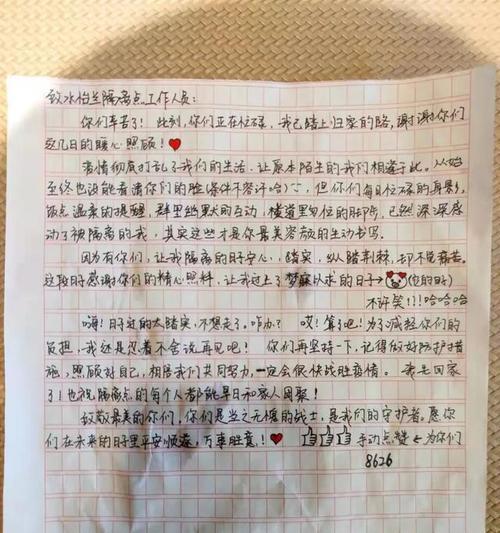 致水怡兰隔离点工作人员：
你们辛苦了！此刻，你们正在忙碌，我已踏上归家的路，谢谢你们
这几日的暖心照顾！
疫情彻底打乱了我们的生活，让原本陌生的我们相逢于此。从始
至终也没能看清你们的脸（身体不容许哈），但你们每日忙碌的身影，
饭点温柔的提醒，群里幽默的互动，楼道里匆忙的脚步，已然深深感
动了被隔离的我，其实这些才是你最美容颜的生动书写。
因为有你们，让我隔离的日子安心、踏实，纵踏荆棘，却不觉痛苦。
这段时感谢你们的精心照料，让我过上了梦寐以求的日子→（位的日子）
不许笑！！！哈哈哈
嗨！日子过的太踏实，不想走了。咋办？哎！算了吧！为了减轻你们的
负担，我还是忍着不舍说再见吧！你们再坚持一下，记得做好防护措
施，照顾好自己，相信我们共同努力，一定会很快战胜疫情。我先回家
了！也祝隔离点的每个人都能早日和家人团聚！
致敬最美的你们，你们是当之无愧的战士，是我们的守护者。愿你
们在未来的日子里平安顺遂，万事胜意！手动点赞←为你们
8626